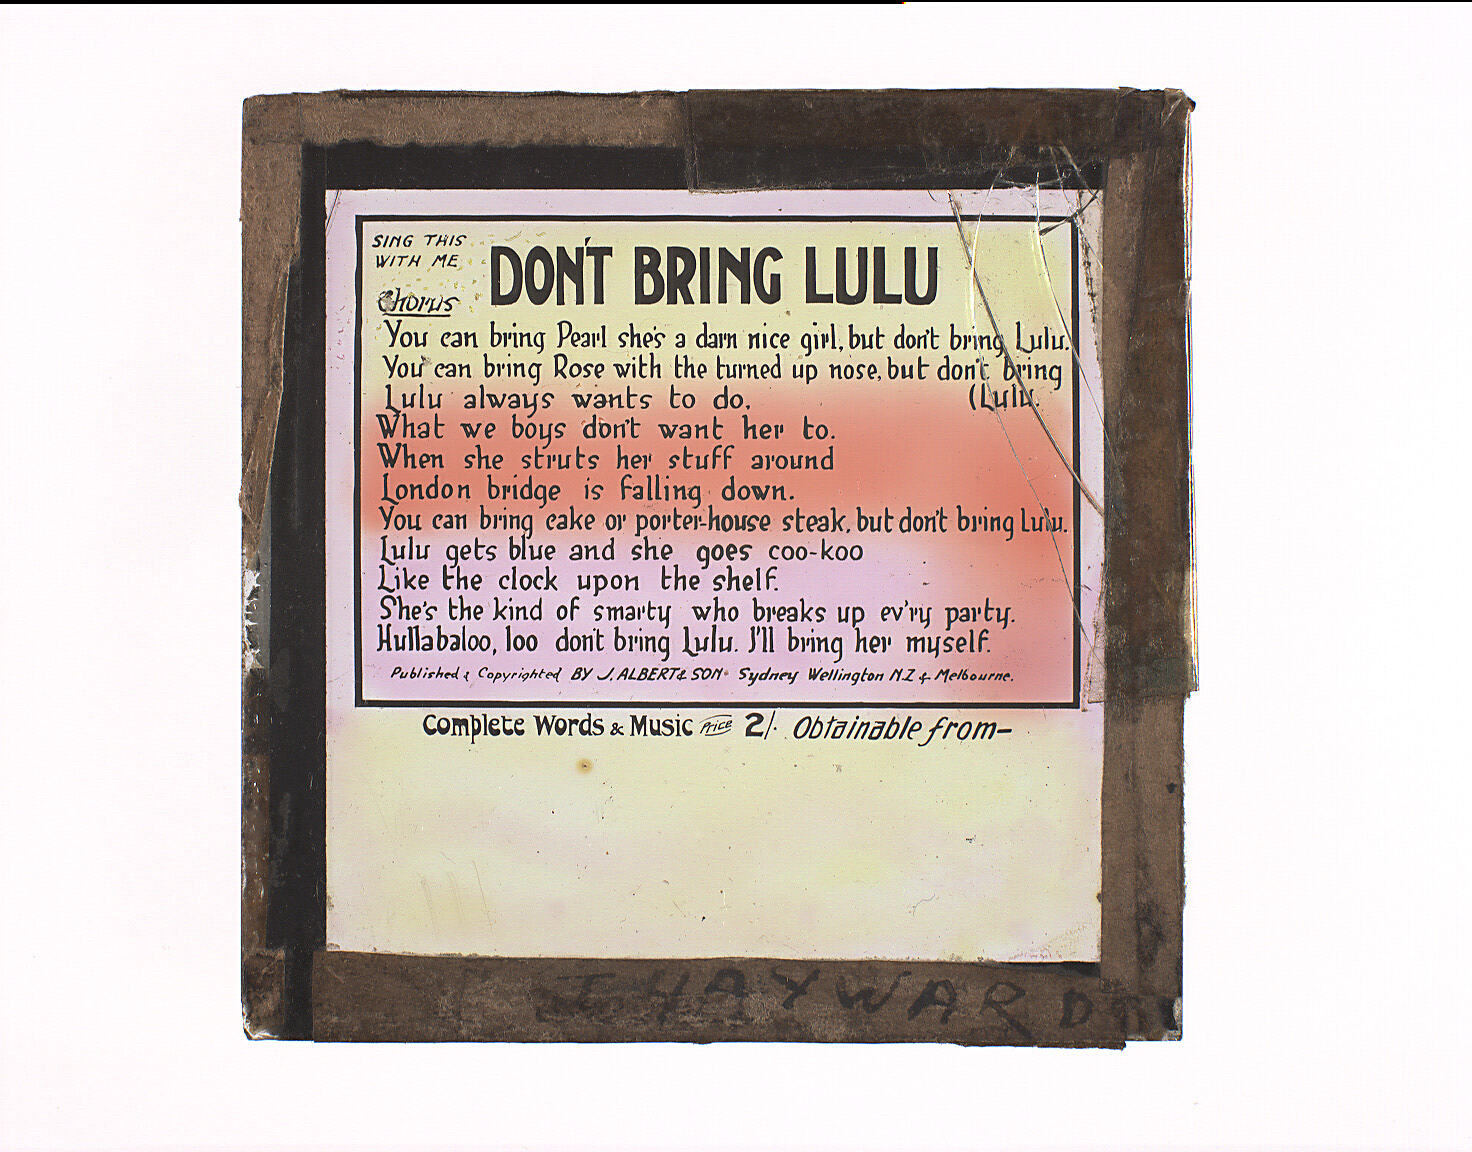 SING THIS
WITH ME
DON'T BRING LULU
Chorus
You can bring Pearl she's a darn nice girl, but don't bring Lulu.
You can bring Rose with the turned up nose, but don't bring
Lulu always wants to do. (Lulu.
What we boys don't want her to.
When she struts her stuff around
London bridge is falling down.
You can bring cake or porter-house steak, but don't bring Lulu.
Lulu gets blue and she goes coo-koo
Like the clock upon the shelf.
She's the kind of smarty who breaks up ev'ry party.
Hullabaloo, loo don't bring Lulu. I'll bring her myself.
Published & Copyrighted BY J. ALBERT & SON Sydney Wellington N.Z & Melbourne.
Complete Words & Music Price 2/. Obtainable from-
HAYWARD